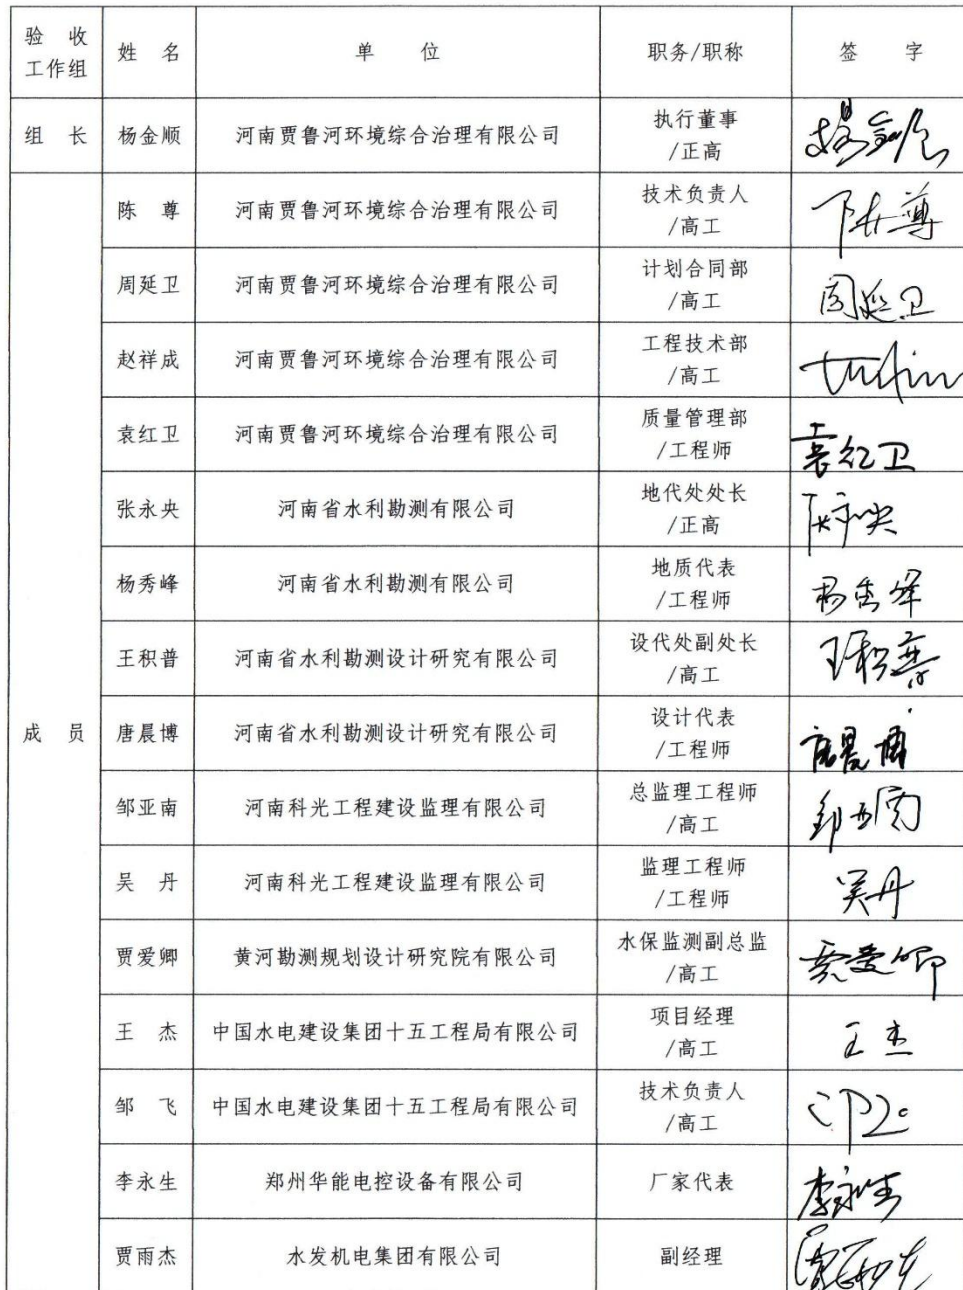 验 收
工作组 姓 名 单 位 职务/职称 签 字
组 长 杨金顺 河南贾鲁河环境综合治理有限公司 执行董事
/正高
成 员
陈 尊 河南贾鲁河环境综合治理有限公司 技术负责人
/高工 陈尊
周延卫 河南贾鲁河环境综合治理有限公司 计划合同部
/高工 周延卫
赵祥成 河南贾鲁河环境综合治理有限公司 工程技术部
/高工
袁红卫 河南贾鲁河环境综合治理有限公司 质量管理部
/工程师 袁红卫
张永央 河南省水利勘测有限公司 地代处处长
/正高 张永央
杨秀峰 河南省水利勘测有限公司 地质代表
/工程师 杨秀峰
王积普 河南省水利勘测设计研究有限公司 设代处副处长
/高工 王积普
唐晨博 河南省水利勘测设计研究有限公司 设计代表
/工程师 唐晨博
邹亚南 河南科光工程建设监理有限公司 总监理工程师
/高工 邹亚南
吴 丹 河南科光工程建设监理有限公司 监理工程师
/工程师 吴丹
贾爱卿 黄河勘测规划设计研究院有限公司 水保监测副总监
/高工 贾爱卿
王 杰 中国水电建设集团十五工程局有限公司 项目经理
/高工 王杰
邹 飞 中国水电建设集团十五工程局有限公司 技术负责人
/高工
李永生 郑州华能电控设备有限公司 厂家代表 李永生
贾雨杰 水发机电集团有限公司 副经理